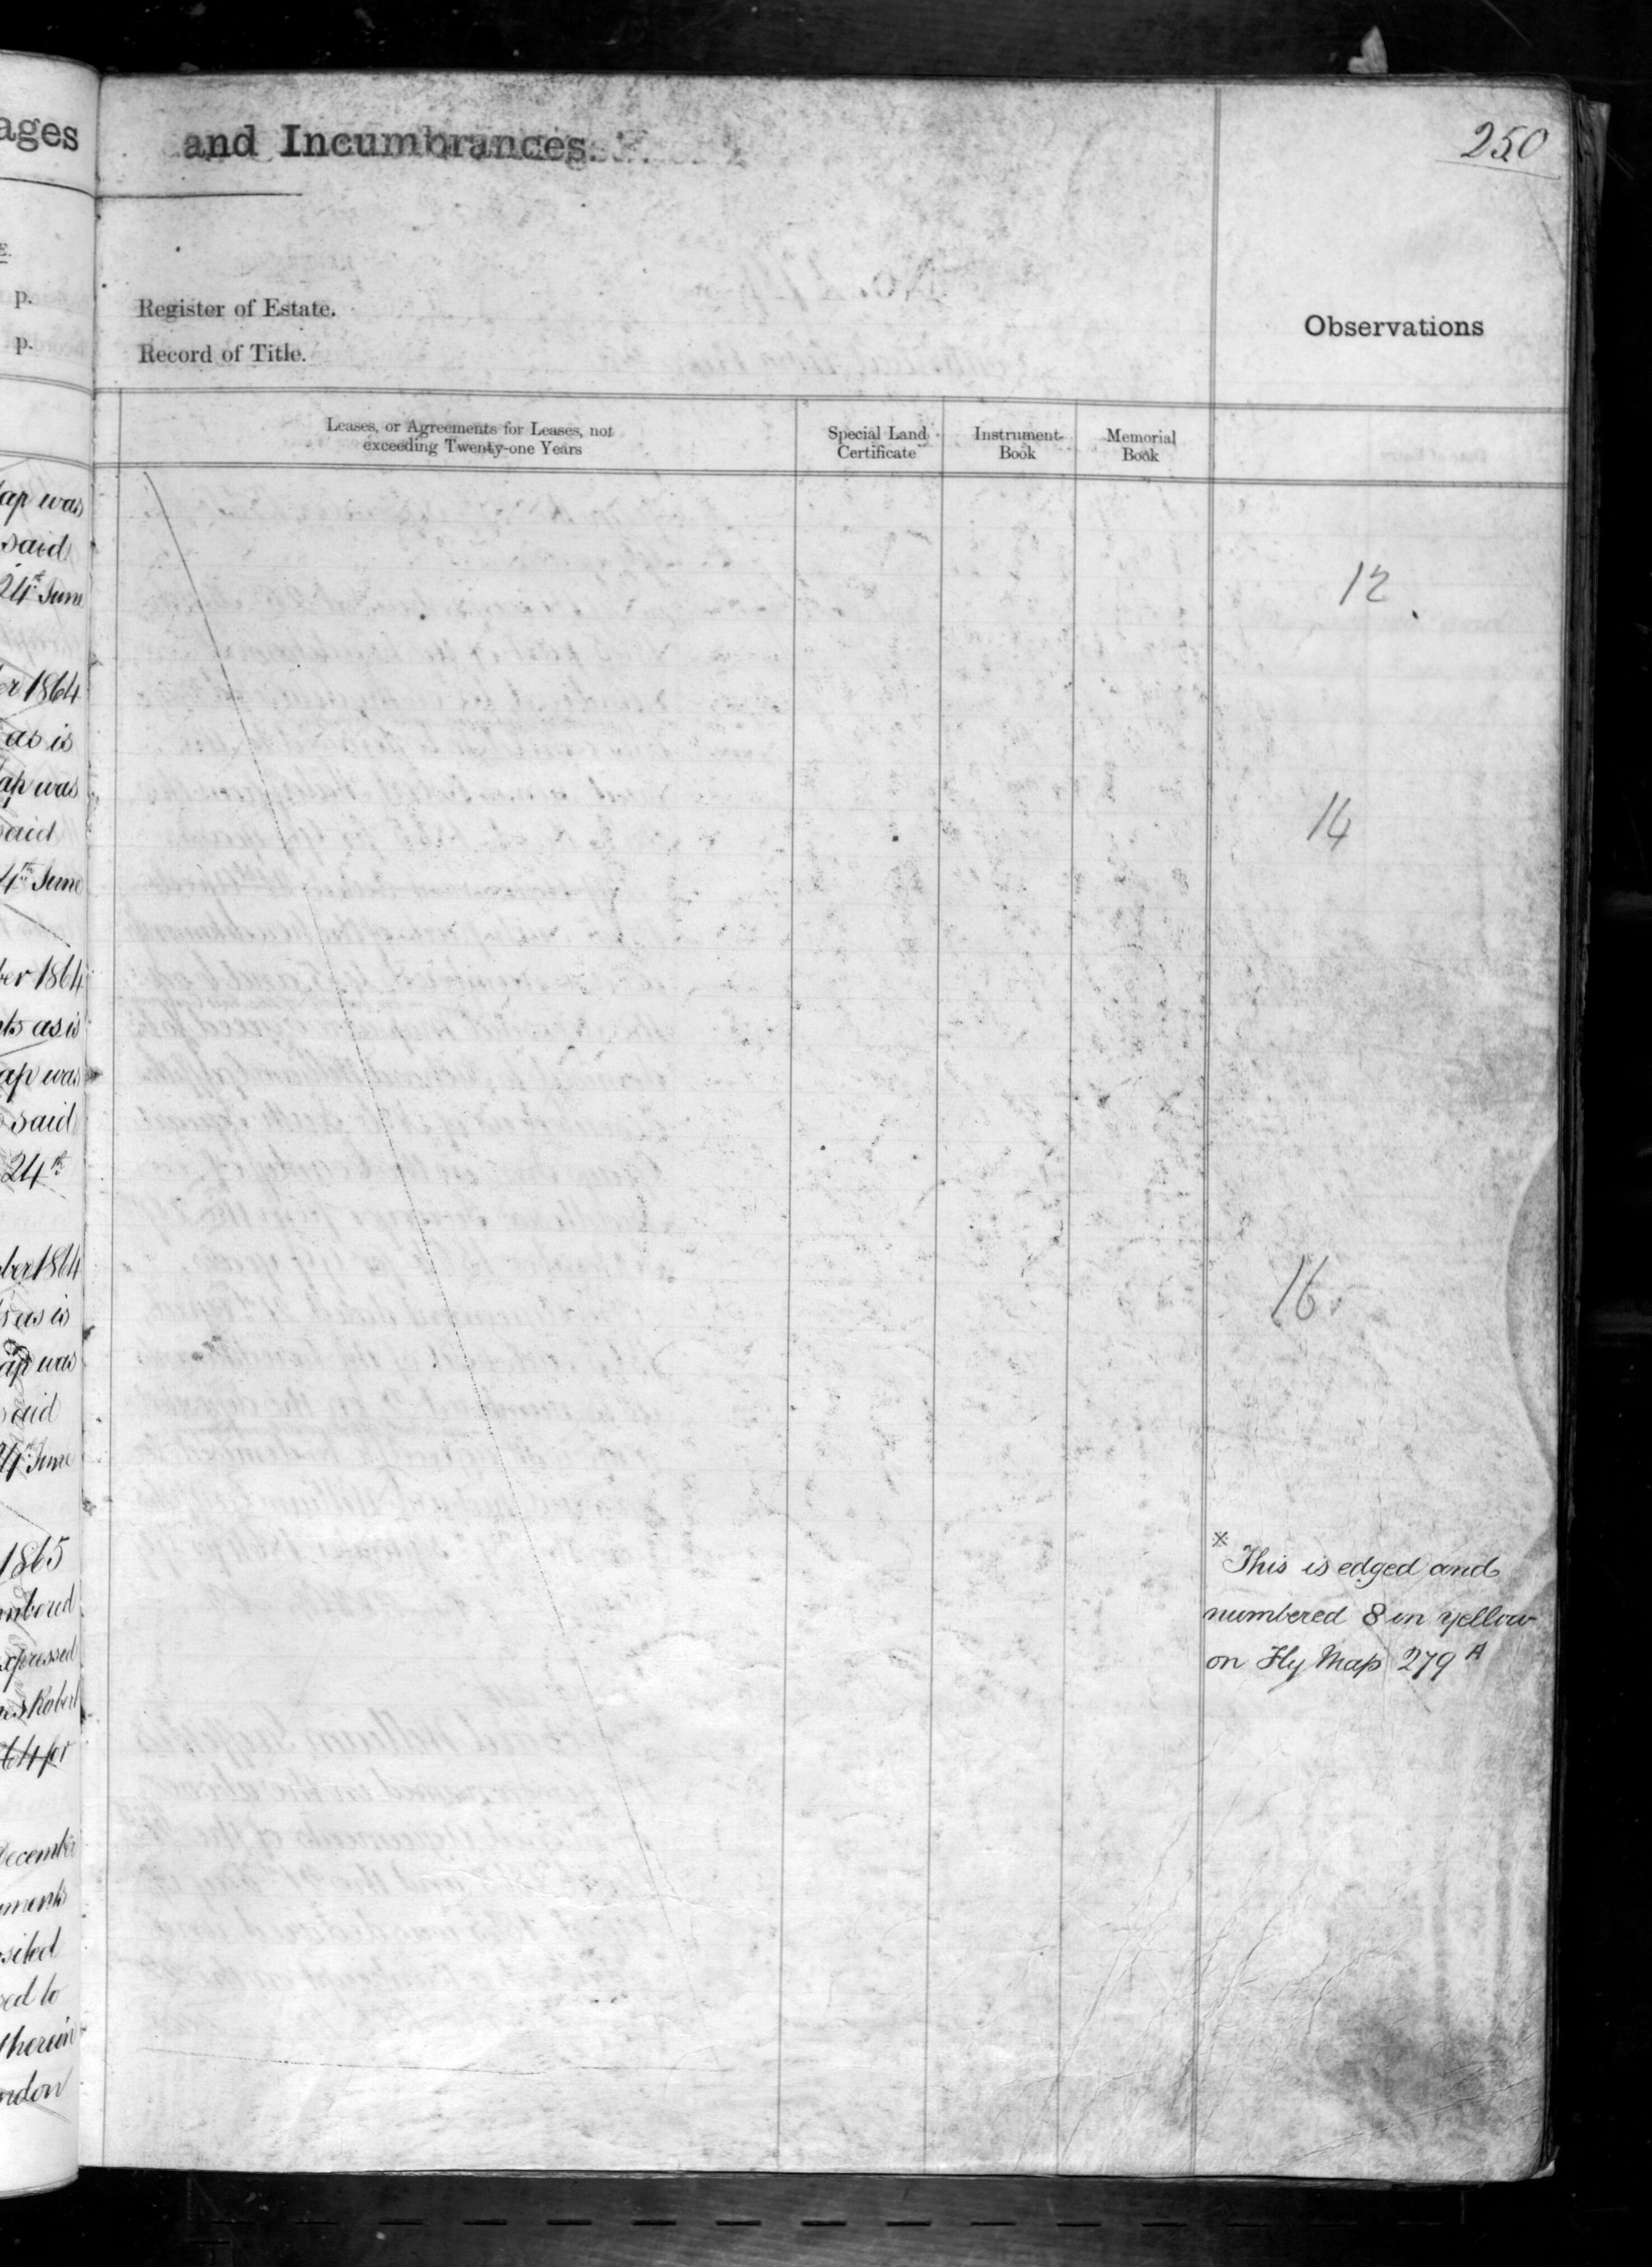 ages
E.
p.
p.
ap was
said
24th June
er 1864
as is
ap was
said
4th June
ber 1864
as is
ap was
said
24th
ber 1864
as is
ap was
said
24th June
1865
xpressed
es Robert
64 for
December
ments
sited
sed to
therein
ndon
and Incumbrances.
250
Register of Estate.
Record of Title.
Observations
Leases, or Agreements for Leases, not
exceeding Twenty-one Years
Special Land
Certificate
Instrument
Book
Memorial
Book
12
14
16
※
This is edged and
numbered 8 in yellow
on Fly Map 279 A